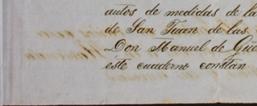 autos de medidas de la
de San Juan de las
Don Manuel de
este cuaderno constan